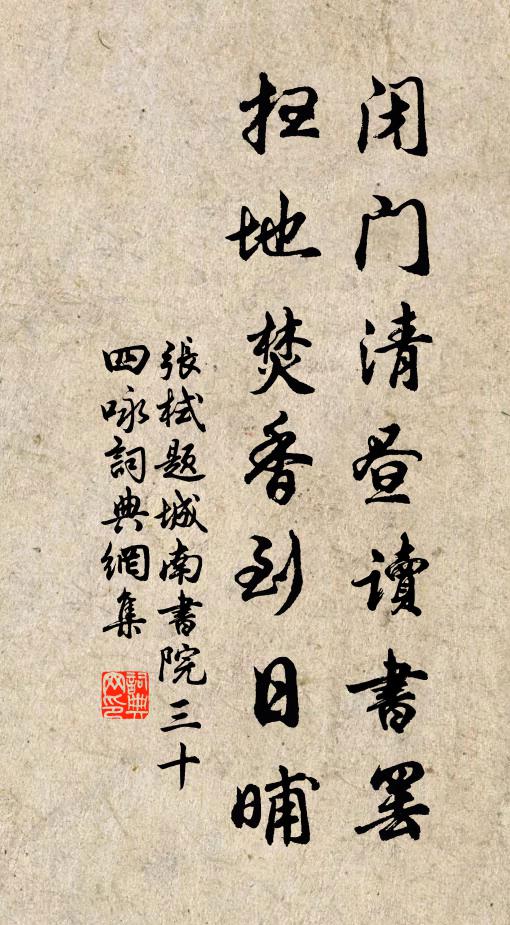 闭门清昼读书罢
扫地焚香到日晡
張栻題城南書院三十
四咏詞典網集
詞典
网印